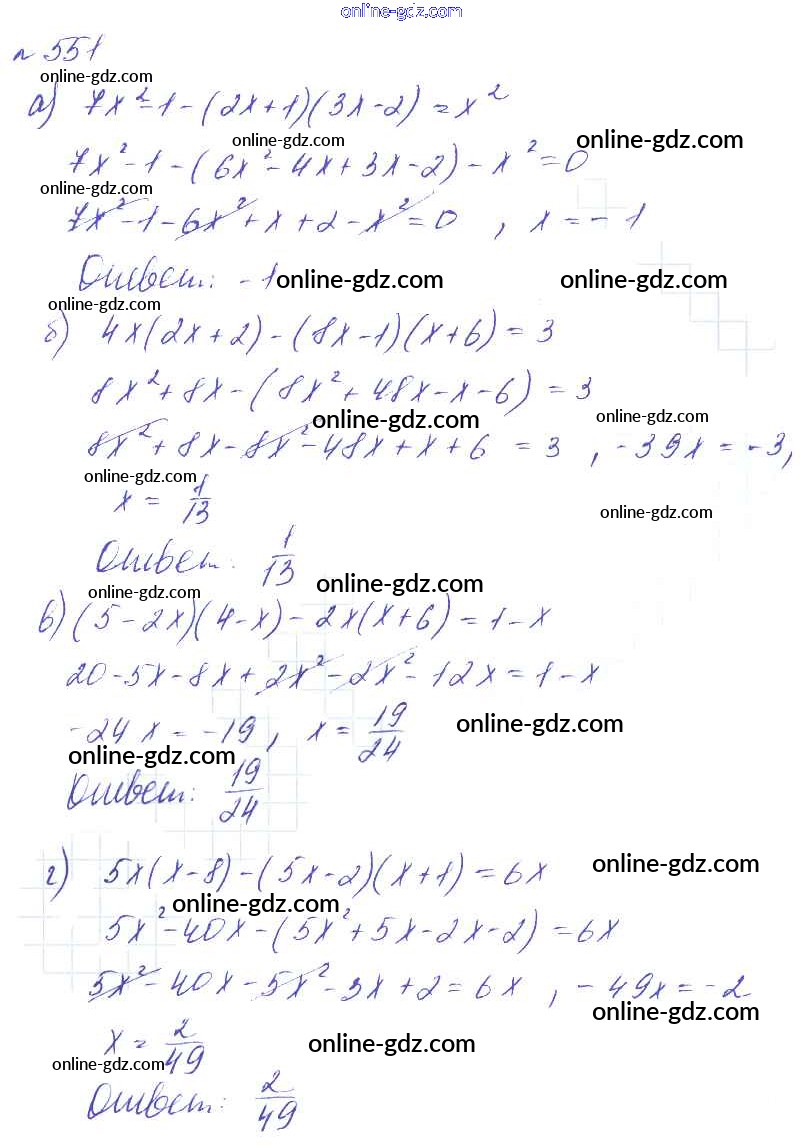 online-gdz.com
№ 551
online-gdz.com
а) 7x² - 1 - (2x + 1)(3x - 2) = x²
online-gdz.com online-gdz.com
7x² - 1 - (6x² - 4x + 3x - 2) - x² = 0
online-gdz.com
7x² - 1 - 6x² + x + 2 - x² = 0 , x = - 1
Ответ: - 1 online-gdz.com online-gdz.com
online-gdz.com
б) 4x(2x + 2) - (8x - 1)(x + 6) = 3
8x² + 8x - (8x² + 48x - x - 6) = 3
online-gdz.com online-gdz.com
8x² + 8x - 8x² - 48x + x + 6 = 3 , - 39x = - 3,
online-gdz.com
x = 1/13
online-gdz.com
Ответ: 1/13
online-gdz.com online-gdz.com
в) (5 - 2x)(4 - x) - 2x(x + 6) = 1 - x
20 - 5x - 8x + 2x² - 2x² - 12x = 1 - x
- 24x = - 19 , x = 19/24 online-gdz.com
online-gdz.com
Ответ: 19/24
г) 5x(x - 8) - (5x - 2)(x + 1) = 6x online-gdz.com
online-gdz.com
5x² - 40x - (5x² + 5x - 2x - 2) = 6x
5x² - 40x - 5x² - 3x + 2 = 6x , - 49x = - 2
online-gdz.com
x = 2/49 online-gdz.com
online-gdz.com
Ответ: 2/49